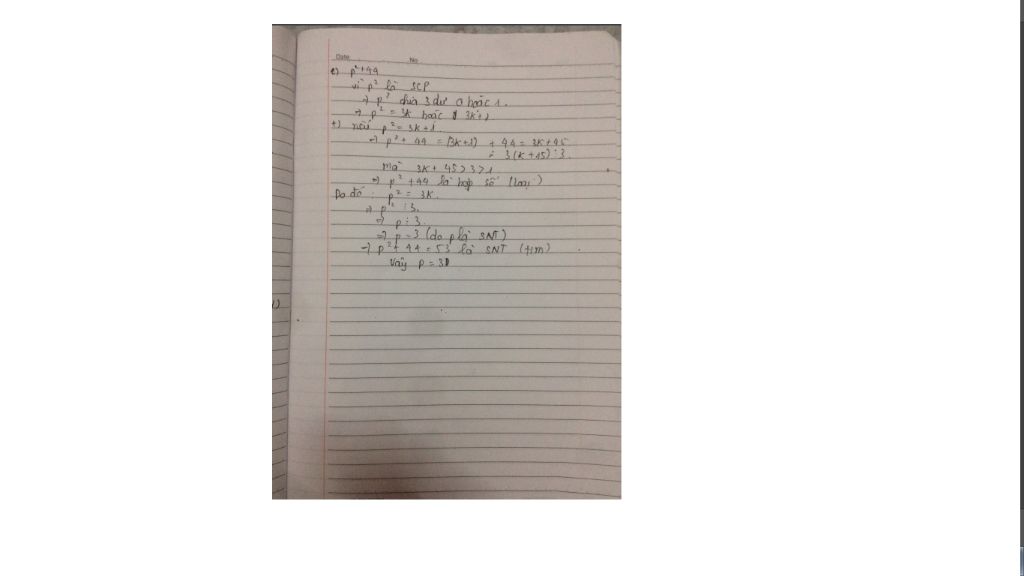 Date No
c) p² + 44
vì p² là SCP
⇒ p² chia 3 dư 0 hoặc 1.
⇒ p² = 3k hoặc 3k+1
+) nếu p² = 3k+1
⇒ p² + 44 = (3k+1) + 44 = 3k+45
= 3(k+15) ⋮ 3.
mà 3k + 45 > 3 > 1
⇒ p² + 44 là hợp số (loại)
Do đó: p² = 3k.
⇒ p² ⋮ 3.
⇒ p ⋮ 3.
⇒ p = 3 (do p là SNT)
⇒ p² + 44 = 53 là SNT (t/m)
Vậy p = 3